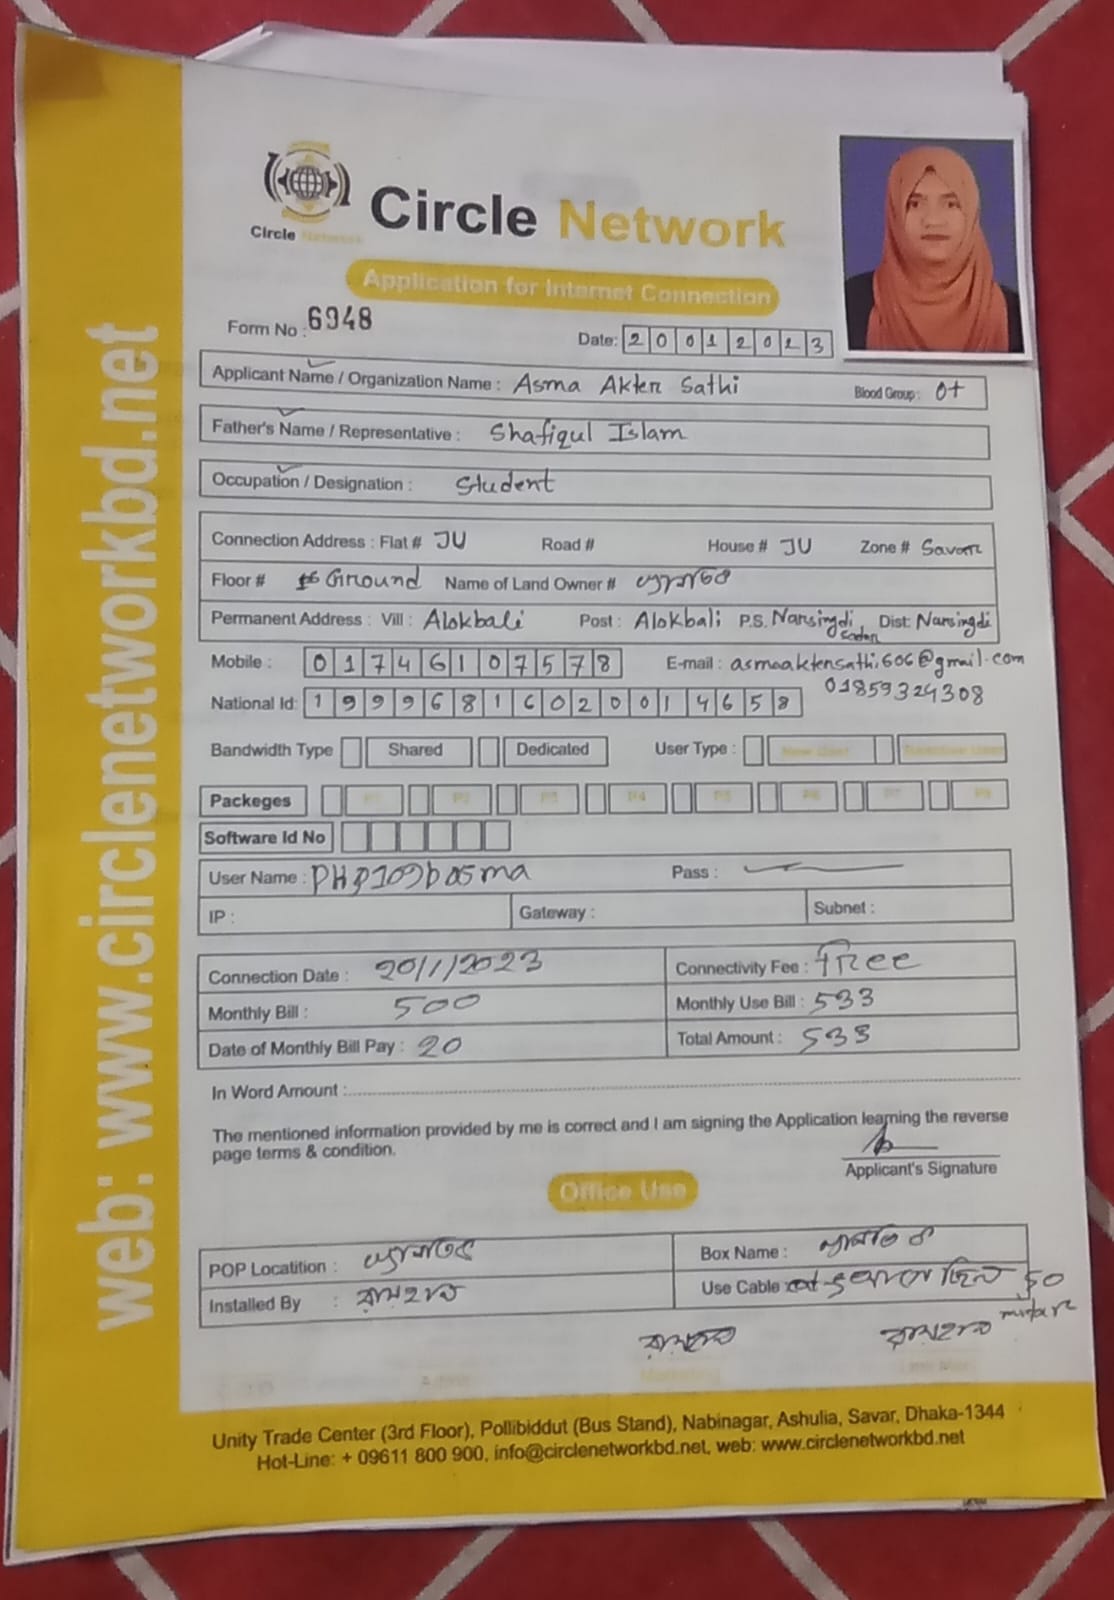 web: www.circlenetworkbd.net
Circle Network
Circle Network
Application for Internet Connection
Form No : 6948
Date: 20012023
Applicant Name / Organization Name : Asma Akter Sathi Blood Group : O+
Father's Name / Representative : Shafiqul Islam
Occupation / Designation : Student
Connection Address : Flat # JU Road # House # JU Zone # Savar
Floor # Ground Name of Land Owner #
Permanent Address : Vill : Alokbali Post : Alokbali P.S. Narsingdi Sadar Dist: Narsingdi
Mobile : 01746107578 E-mail : asmaaktersathi606@gmail.com
01859324308
National Id: 19996816020014658
Bandwidth Type Shared Dedicated User Type : New User
Packeges P1 P2 P3 P4 P5 P6 P7 P8
Software Id No
User Name : Pass :
IP : Gateway : Subnet :
Connection Date : 20/1/2023 Connectivity Fee : free
Monthly Bill : 500 Monthly Use Bill : 533
Date of Monthly Bill Pay : 20 Total Amount : 533
In Word Amount :
The mentioned information provided by me is correct and I am signing the Application learning the reverse
page terms & condition.
Applicant's Signature
Office Use
POP Locatition : Box Name :
Installed By : Use Cable
Marketing
Unity Trade Center (3rd Floor), Pollibiddut (Bus Stand), Nabinagar, Ashulia, Savar, Dhaka-1344
Hot-Line: + 09611 800 900, info@circlenetworkbd.net, web: www.circlenetworkbd.net